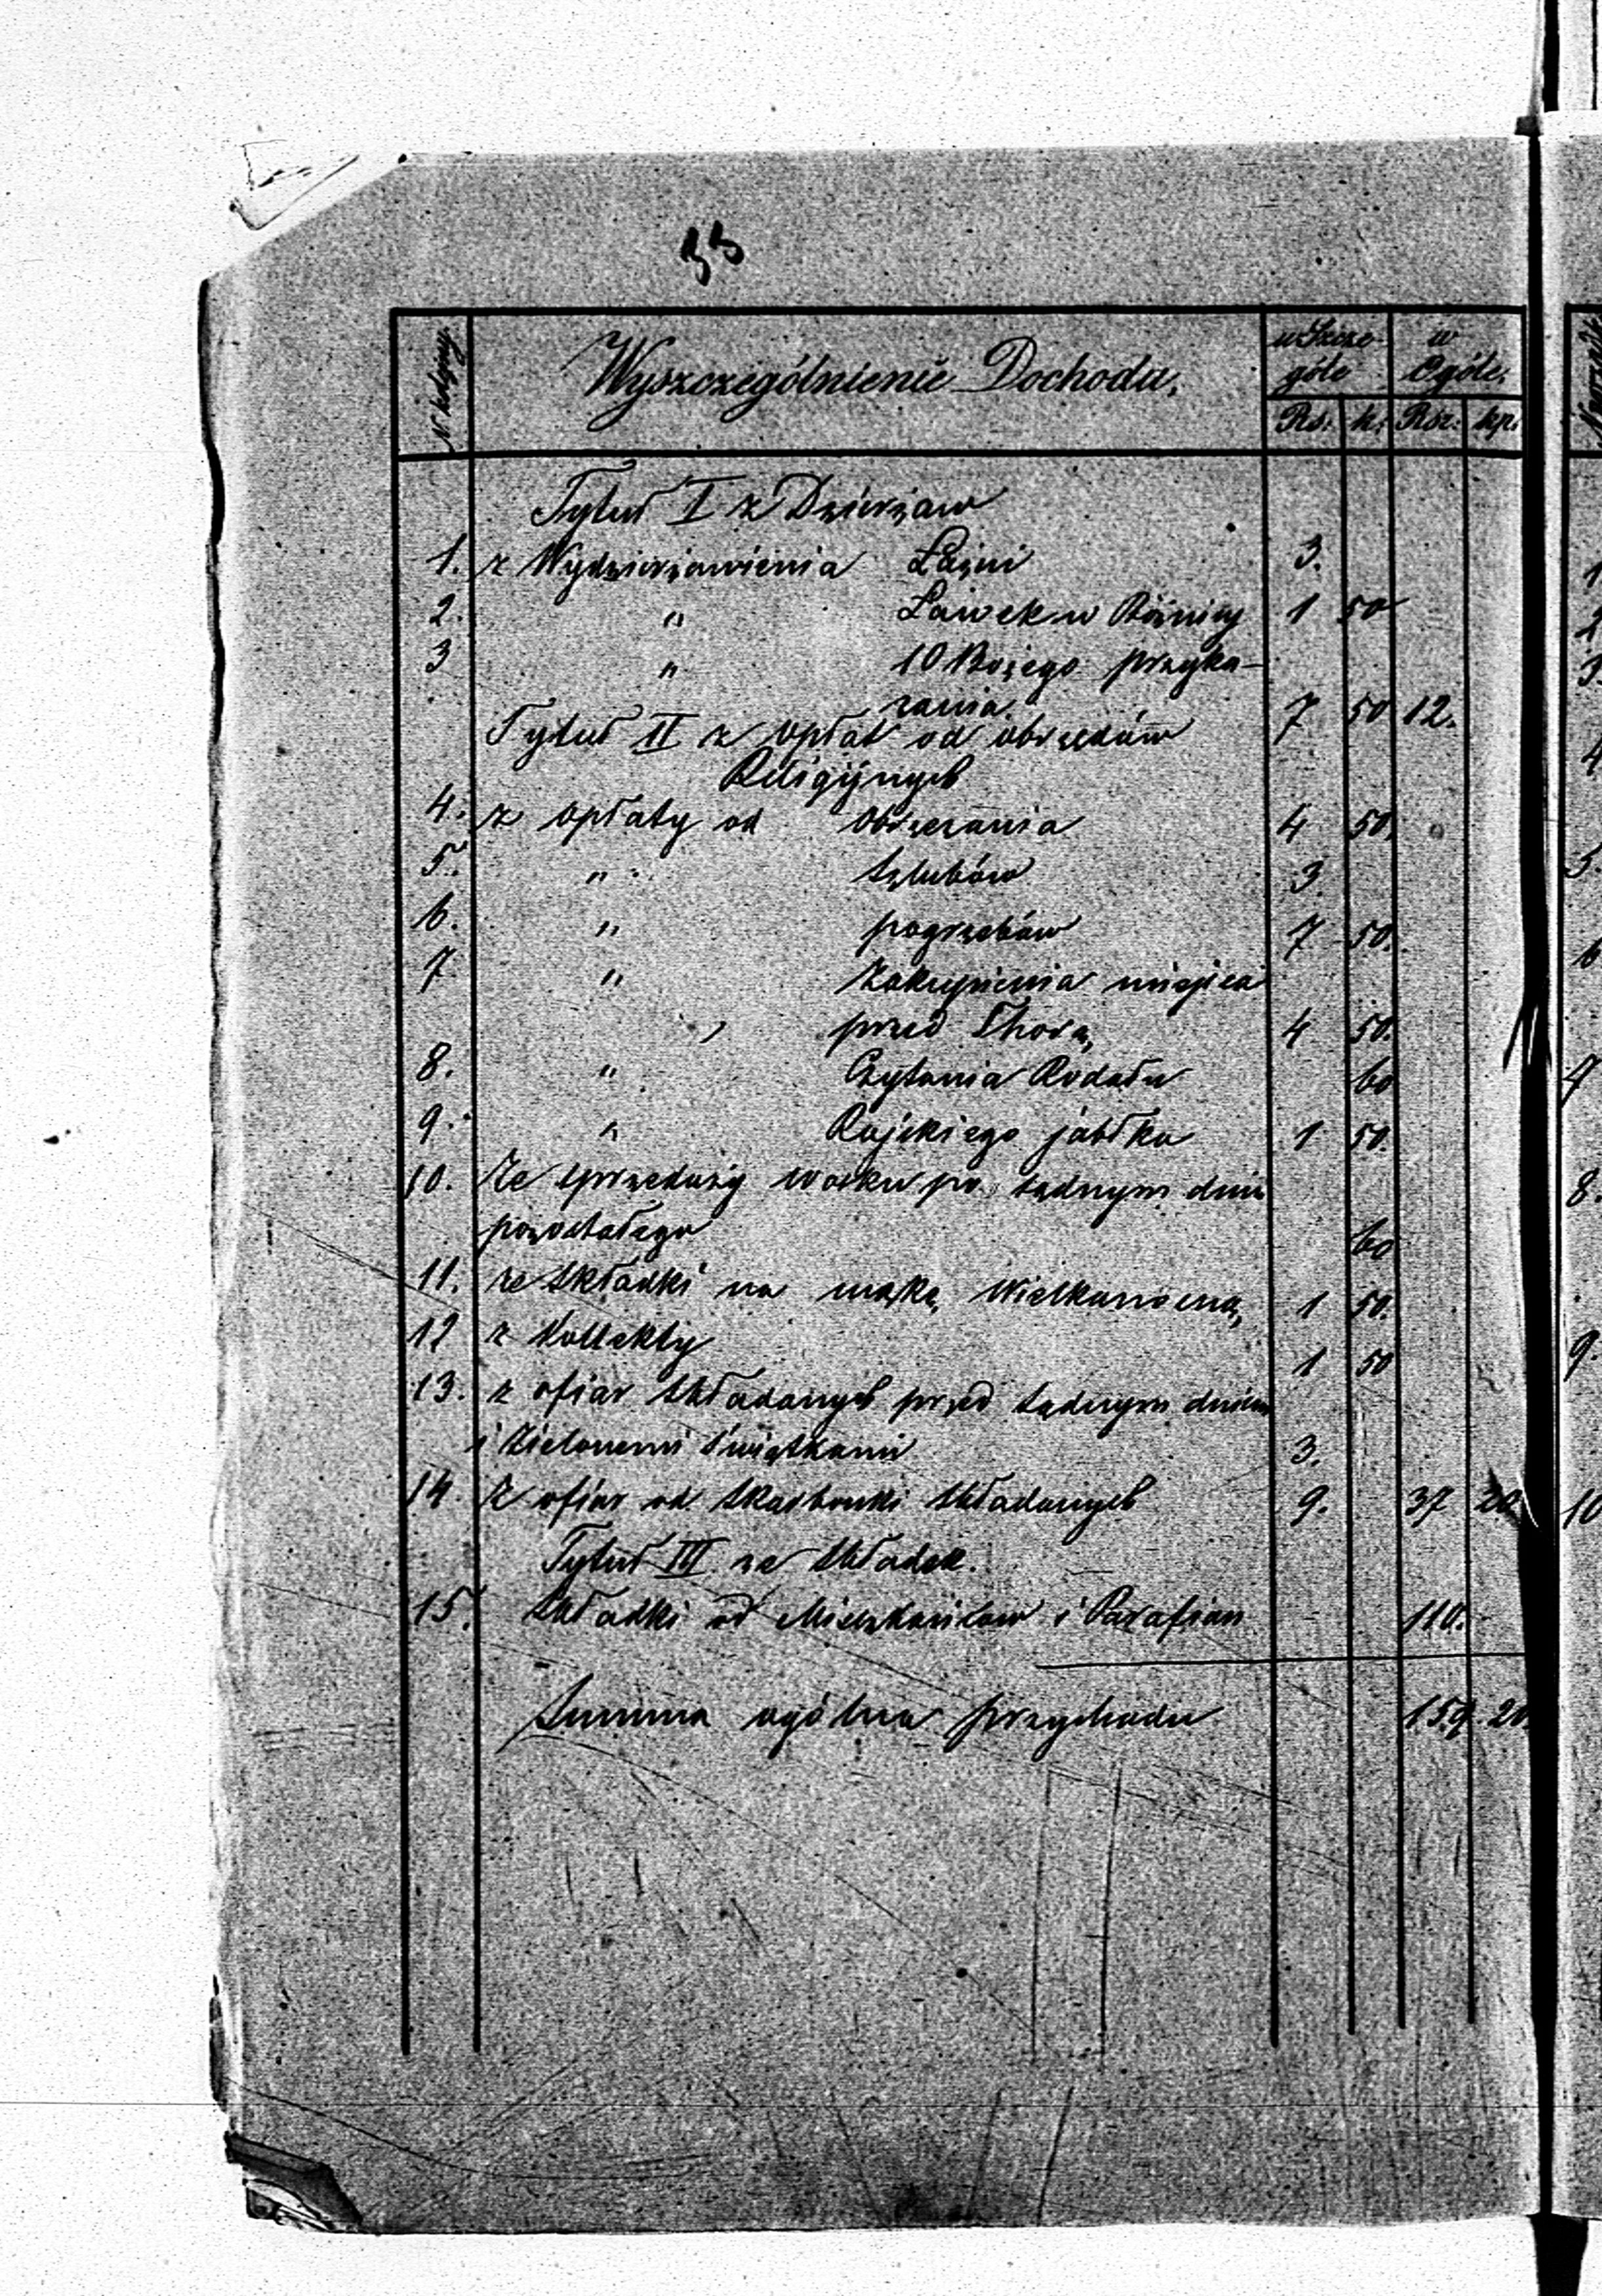 33
N. kolejny. Wyszczególnienie Dochodu, w Szcze- w
góle Ogóle.
Rs: k: Rsr: kp.
Tytuł I z Dzierżaw
1. z Wydzierżawienia Łaźni 3.
2. " Ławek w Bóżnicy 1 50
3 " 10 Bożego przyka-
zania. 7 50 12.
Tytuł II z opłat od obrzędów
Religijnych
4. z opłaty od Obrzezania 4 50.
5. " szlubów 3.
6. " pogrzebów 7 50.
7. " Zakupienia miejsca
przed Thorą 4 50.
8. " Czytania Rodału 60
9. " Rajskiego jabłka 1 50.
10. Ze sprzedaży wosku po sądnym dniu
pozostałego 60
11. ze składki na mąkę Wielkanocną 1 50.
12 z Kollekty 1 50
13. z ofiar składanych przed sądnym dniem
i Zielonemi Świątkami 3.
14. Z ofiar od skarbonki składanych 9. 37 20
Tytuł III ze składek.
15. składki od Mieszkańców i Parafian 110.
Summa ogólna przychodu 159 20.
1
2
3.
4
5.
6
7
8.
9.
10